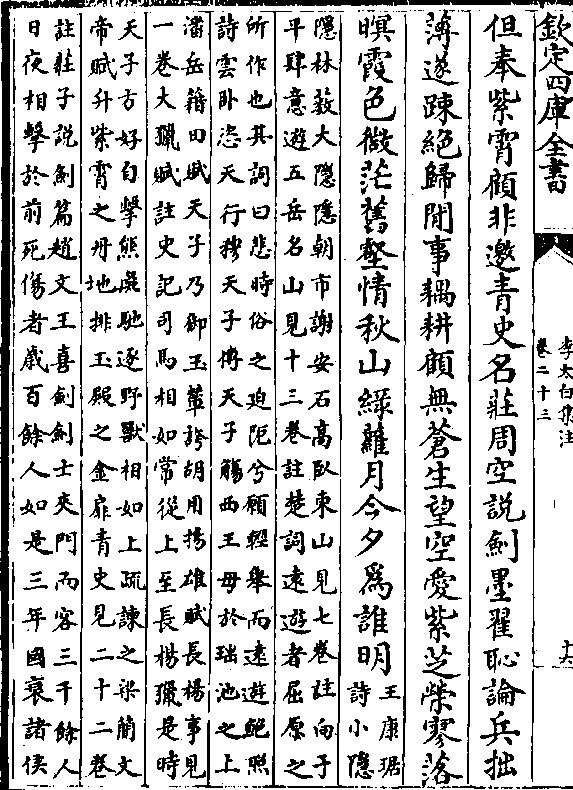 欽定四庫全書
李太白集注
卷二十三
十六
但奉紫霄顧非邀青史名莊周空說劍墨翟恥論兵拙
薄遂疎絕歸閒事耦耕顧無蒼生望空愛紫芝榮寥落
暝霞色微茫舊壑情秋山綠蘿月今夕為誰明
王康琚
詩小隱
隱林藪大隱隱朝市謝安石高臥東山見七卷註向子
平肆意遊五岳名山見十三卷註楚詞遠遊者屈原之
所作也其詞曰悲時俗之迫阨兮願輕舉而遠遊鮑照
詩雲臥恣天行穆天子傳天子觴西王母於瑤池之上
潘岳籍田賦天子乃御玉輦誇胡用揚雄賦長楊事見
一卷大獵賦註史記司馬相如常從上至長楊獵是時
天子方好自擊熊彘馳逐野獸相如上疏諫之梁簡文
帝賦升紫霄之丹地排玉殿之金扉青史見二十二卷
註莊子說劍篇趙文王喜劍劍士夾門而客三千餘人
日夜相擊於前死傷者歲百餘人如是三年國衰諸侯